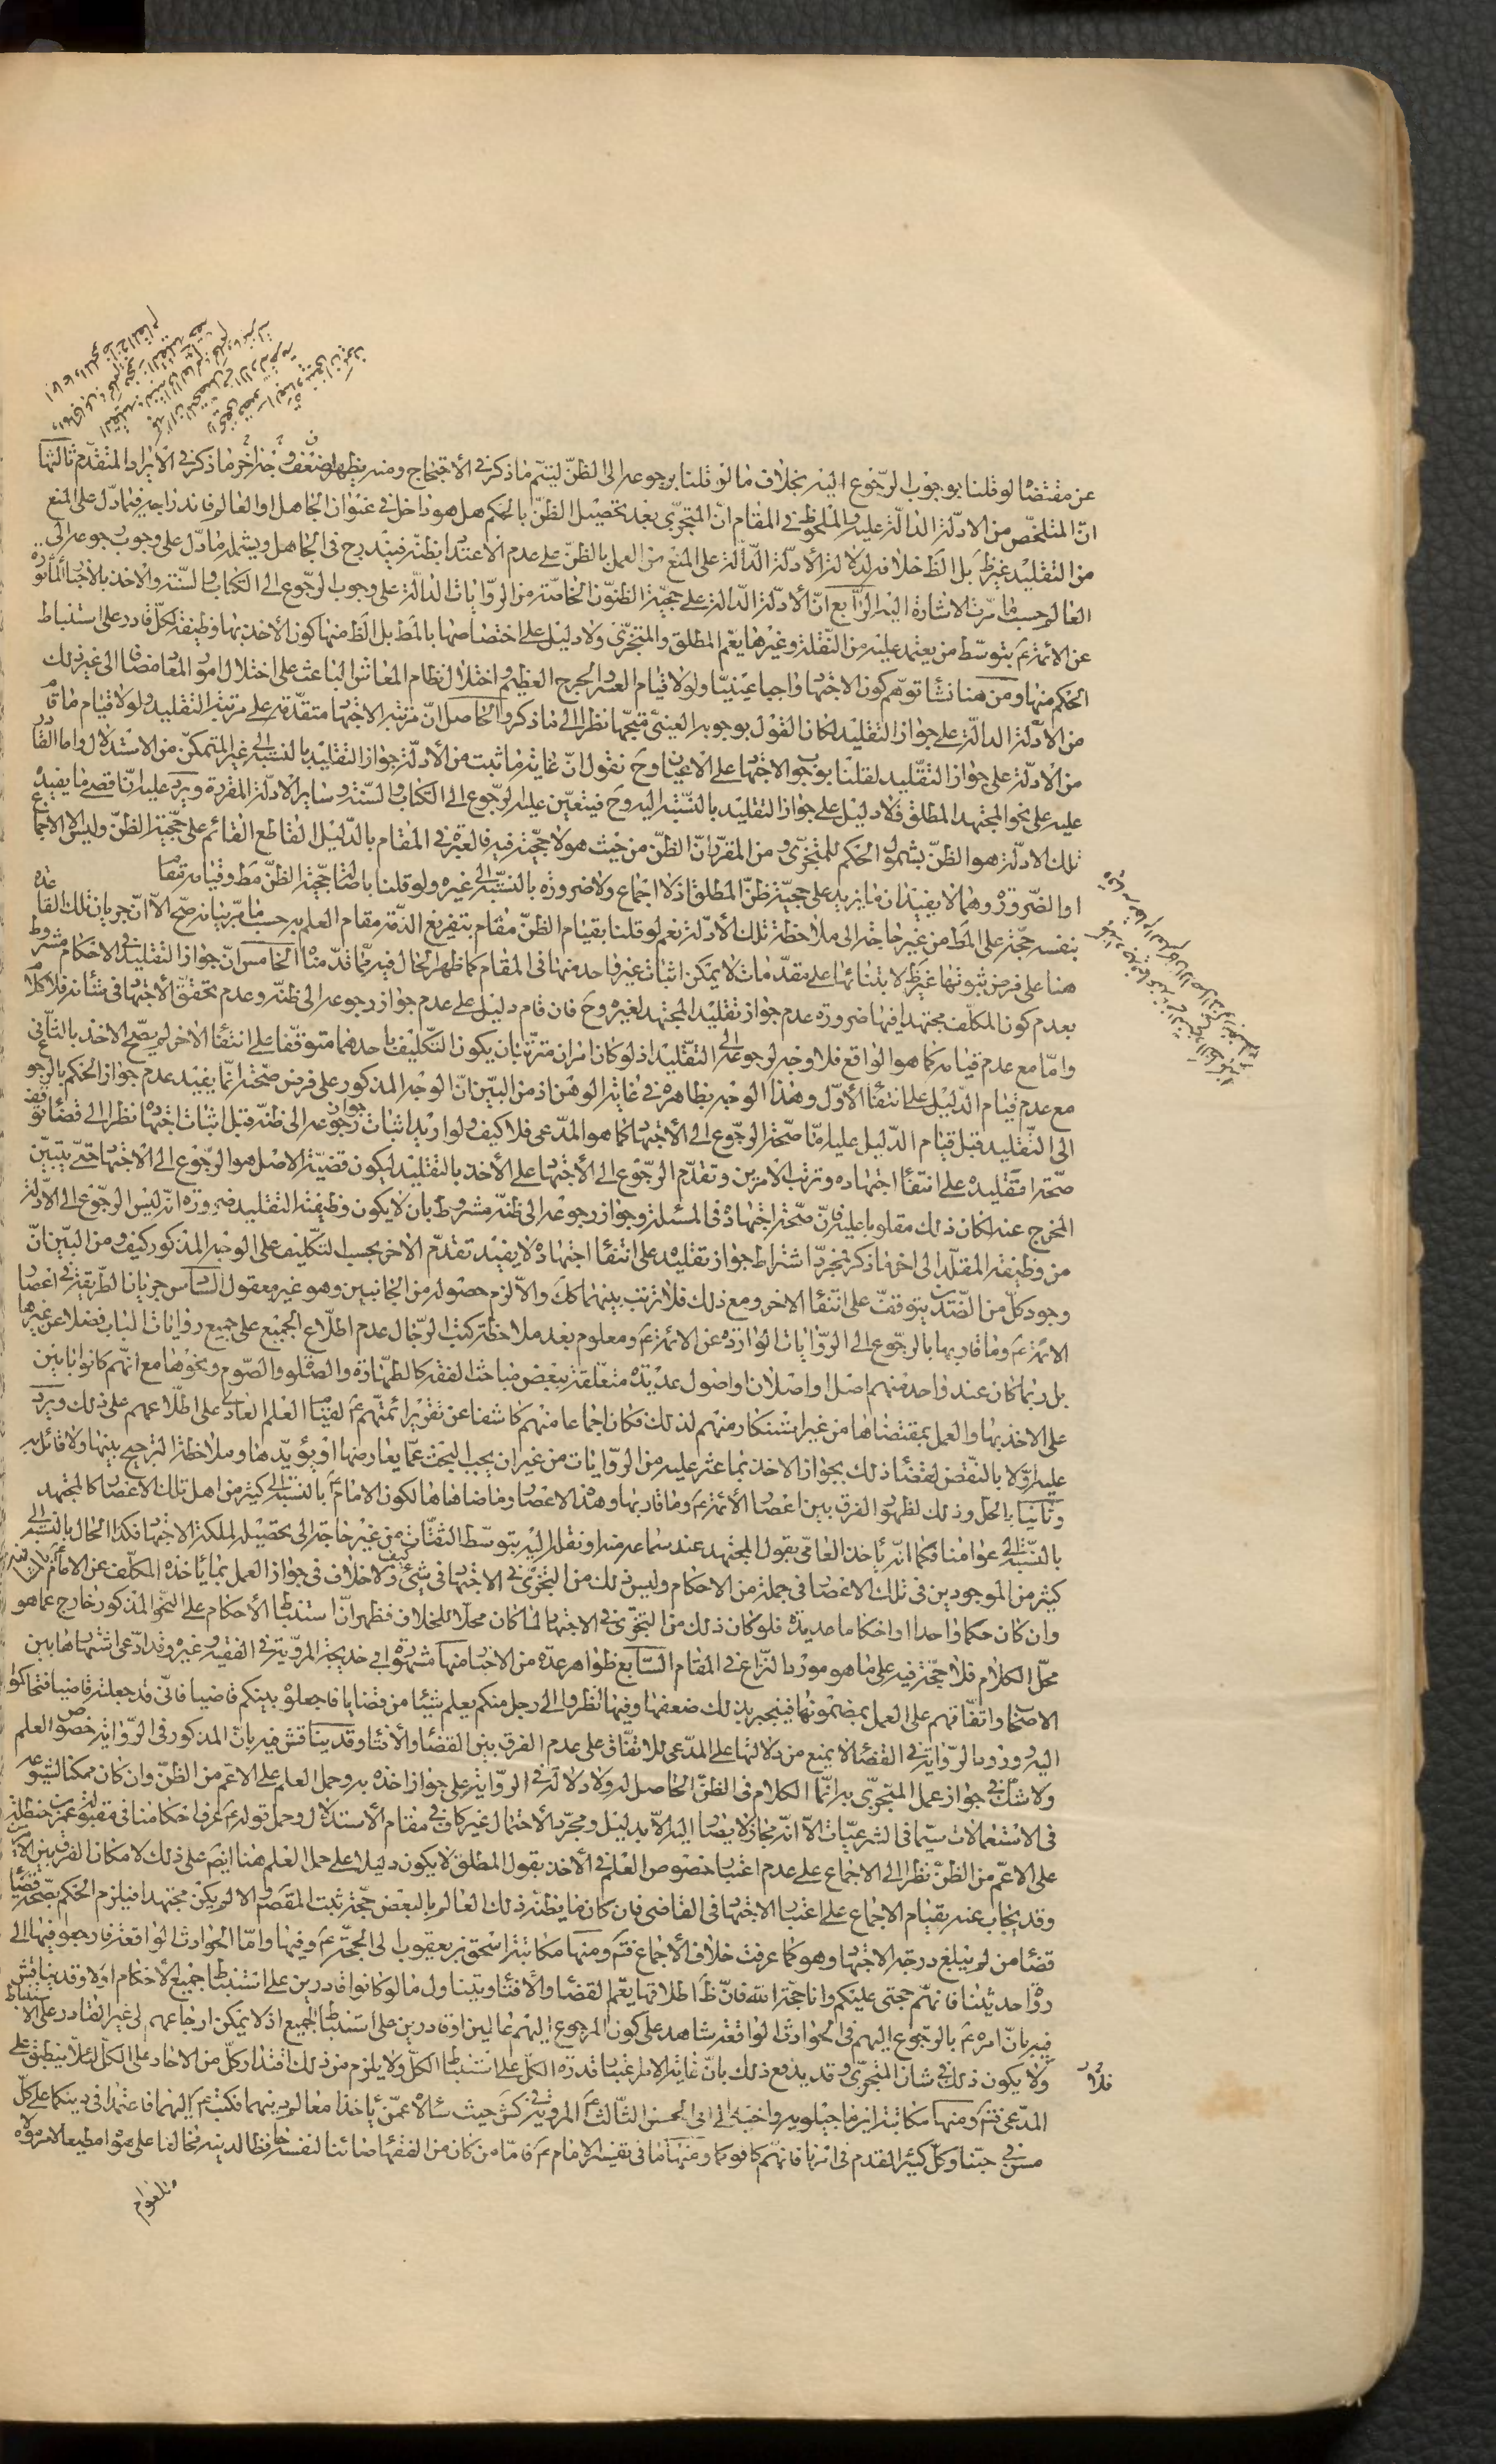 عن مقتضاه لو قلنا بوجوب الرّجوع اليه بخلاف ما لو قلنا برجوعه الى الظنّ ليتم ما ذكر في الاحتجاج ومنه يظهر ضعف وجه اخر ما ذكر في الايراد المتقدّم ثالثها
انّ المتلخّص من الادلّة الدالّة عليه والملحوظ في المقام انّ المتجزّي بعد تحصيل الظنّ بالحكم هل هو داخل في عنوان الجاهل او العالم فاندراجه فيما دلّ على المنع
من التقليد غير ظَ بل الظَ خلافه لدلالة الأدلّة الدّالة على المنع من العمل بالظنّ على عدم الاعتداد بظنّه فيندرج في الجاهل ويشمله ما دلّ على وجوب رجوعه الى
العالم حسب ما مرّت الاشارة اليه الرّابع انّ الأدلّة الدّالة على حجيّة الظنون الخاصّة من الرّوايات الدّالة على وجوب الرّجوع الى الكتاب والسّنة والاخذ بالاخبار المأثورة
عن الائمّة عَ بتوسّط من يعتمد عليه من النّقلة وغيرها يعمّ المطلق والمتجزّي ولا دليل على اختصاصها بالمطَ بل الظَ منها كون الأخذ بها وظيفة لكلّ قادر على استنباط
الحكم منها ومن هنا نشأ توهّم كون الاجتهاد واجبا عينيّا ولولا قيام العسر والحرج العظيم واختلال نظام المعاش الباعث على اختلال امور المعاد مضافا الى غير ذلك
من الأدلّة الدالّة على جواز التقليد لكان القول بوجوبه العيني متجّها نظرا الى ما ذكر والحاصل انّ مرتبة الاجتهاد متقدّمة على مرتبة التقليد ولولا قيام ما قام
من الأدلّة على جواز التقليد لقلنا بوجوب الاجتهاد على الاعيان وحَ نقول انّ غاية ما ثبت من الأدلّة جواز التقليد بالنسبة الى غير المتمكّن من الاستدلال واما القادر
عليه على نحو المجتهد المطلق فلا دليل على جواز التقليد بالنّسبة اليه وحَ فيتعيّن عليه الرجوع الى الكتاب والسّنة وساير الأدلّة المقرّرة ويرد عليه انّ اقصى ما يفيده
تلك الادلّة هو الظنّ بشمول الحكم للمتجزّي ومن المقرّر انّ الظنّ من حيث هو لا حجيّة فيه فالعبرة في المقام بالدّليل القاطع القائم على حجّية الظنّ وليس الا الاجماع
او الضّرورة وهما لا يفيدان ما يزيد على حجيّة ظنّ المطلق اذ لا اجماع ولا ضرورة بالنسّبة الى غيره ولو قلنا باصالة حجّية الظنّ مطَ وقيامه مقامه
بنفسه حجّة على المطَ من غير حاجة الى ملاحظة تلك الأدلّة نعم لو قلنا بقيام الظنّ مقام بتفريغ الذّمة مقام العلم به حسب ما مرّ بيانه صحّ الا انّ جريان تلك القاعدة
هنا على فرض ثبوتها غير ظَ لابتنائها على مقدّمات لا يمكن اثبات غير واحد منها في المقام كما ظهر الحال فيه ممّا قدّمناه الخامس انّ جواز التقليد في الاحكام مشروط
بعدم كون المكلّف مجتهدا فيها ضرورة عدم جواز تقليد المجتهد لغيره وحَ فان قام دليل على عدم جواز رجوعه الى ظنّه وعدم تحقّق الأجتهاد في شأنه فلا كلام
وامّا مع عدم قيامه كما هو الواقع فلا وجه لرجوعه الى التقليد اذ لو كان امران مترتّبان بكون التكليف باحدهما متوقّفا على انتفاء الآخر لم يصحّ الاخذ بالثاني
مع عدم قيام الدّليل على انتفاء الأوّل وهذا الوجه بظاهره في غاية الوهن اذ من البيّن انّ الوجه المذكور على فرض صحّته انّما يفيد عدم جواز الحكم بالرجوع
الى التّقليد قبل قيام الدّليل عليه امّا صحّة الرجوع الى الأجتهاد كما هو المدّعى فلا كيف ولو اريد اثبات جواز رجوعه الى ظنّه قبل اثبات اجتهاده نظرا الى قضاء توقف
صحّة تقليده على انتفاء اجتهاده وترتّب الامرين وتقدّم الرجوع الى الأجتهاد على الأخذ بالتقليد ليكون قضيّة الاصل هو الرّجوع الى الاجتهاد حتى يتبيّن
المخرج عنه لكان ذلك مقلوبا عليه فانّ صحّة اجتهاده في المسئلة وجواز رجوعه الى ظنّه مشروط بان لا يكون وظيفته التقليد ضرورة انّه ليس الرّجوع الى الادلّة
من وظيفة المقلّد الى اخر ما ذكر فمجرّد اشتراط جواز تقليده على انتفاء اجتهاده لا يفيد تقدّم الاخر بحسب التّكليف على الوجه المذكور كيف ومن البيّن انّ
وجود كلّ من الضّدّين يتوقّف على انتفاء الاخر ومع ذلك فلا ترتّب بينهما ككَ والّا لزم حصوله من الجانبين وهو غير معقول السّادس جريان الطّريقة في اعصار
الائمّة عَ وما قاربها بالرجوع الى الرّوايات الواردة عن الائمّة عَ ومعلوم بعد ملاحظة كتب الرّجال عدم اطّلاع الجميع على جميع روايات الباب فضلا عن غيرها
بل ربما كان عند واحد منهم اصل او اصلان او اصول عديدة متعلّقة ببعض مباحث الفقه كالطّهارة والصّلوة والصّوم ونحوها مع انّهم كانوا بانين
على الاخذ بها والعمل بمقتضاها من غير استنكار منهم لذلك فكان اجماعا منهم كاشفا عن تقرير ائمّتهم عَ لقيام العلم العادي على اطّلاعهم على ذلك ويرد
عليه اوّلا بالنّقض لقضاء ذلك بجواز الاخذ بما عثر عليه من الرّوايات من غير ان يجب البحث عمّا يعارضها او يؤيّدها وملاحظة الترجيح بينها ولا قائل به
وثانيا بالحلّ وذلك لظهور الفرق بين اعصار الأئمّة عَ وما قاربها وهذه الاعصار وما ضاهاها لكون الامام عَ بالنسّبة الى كثير من اهل تلك الاعصار كالمجتهد
بالنّسبة الى عوامنا فكما انّه يأخذ العامّي بقول المجتهد عند سماعه منه او نقله اليه بتوسّط الثقات من غير حاجة الى تحصيله لملكة الاجتهاد فكذا الحال بالنسّبة الى
كثير من الموجودين في تلك الاعصار في جملة من الاحكام وليس ذلك من التجزّي في الاجتهاد في شئ كيف ولا خلاف في جواز العمل بما يأخذه المكلّف عن الامام عَ بالمشافهة
وان كان حكما واحدا او احكاما عديدة فلو كان ذلك من التجزّي في الاجتهاد لما كان محلّا للخلاف فظهر انّ استنباط الأحكام على النحو المذكور خارج عما هو
محلّ الكلام فلا حجّة فيه على ما هو مورد النّزاع في المقام السّابع ظواهر عدّة من الاخبار منها مشهورة ابي خديجة المرويّة في الفقيه وغيره وقد ادّعى اشتهارها بين
الاصحاب واتّفاقهم على العمل بمضمونها فينجبر بذلك ضعفها وفيها انظروا الى رجل منكم يعلم شيئا من قضايانا فاجعلوه بينكم قاضيا فانّي قد جعلته قاضيا فتحاكموا
اليه وورود الرّواية في القضاء لا يمنع من دلالتها على المدّعى للاتّفاق على عدم الفرق بين القضاء والأفتاء وقد يناقش فيه بان المذكور في الرّواية خصوص العلم
ولا شكّ في جواز عمل المتجزّي به انّما الكلام في الظنّ الحاصل له ولا دلالة في الرّواية على جواز اخذه به وحمل العلم على الاعمّ من الظنّ وان كان ممكنا لشيوعه
في الاستعمالات سيّما في الشرعيّات الا انّه مجاز لا يصار اليه الا بدليل ومجرّد الأحتمال غير كاف في مقام الأستدلال وحمل قوله عَ عرف احكامنا في مقبولة عمر بن حنظلة
على الاعمّ من الظنّ نظرا الى الاجماع على عدم اعتبار خصوص العلم في الأخذ بقول المطلق لا يكون دليلا على حمل العلم هنا ايضَ على ذلك لامكان الفرق بين الامرين
وقد يجاب عنه بقيام الاجماع على اعتبار الاجتهاد في القاضي فان كان ما يظنّه ذلك العالم بالبعض حجّة ثبت المقصود والا لم يكن مجتهدا فيلزم الحكم بصحّة قضاء
قضاء من لم يبلغ درجة الاجتهاد وهو كما عرفت خلاف الأجماع فتمَ ومنها مكاتبة اسحق بن يعقوب الى الحجّة عَ وفيها وامّا الحوادث الواقعة فارجعوا فيها الى
رواة حديثنا فانّهم حجتي عليكم وانا حجّة الله فانّ ظَ اطلاقها يعمّ القضاء والأفتاء ويتناول ما لو كانوا قادرين على استنباط جميع الأحكام او لا وقد يناقش
فيه بانّ امره عَ بالرجوع اليهم في الحوادث الواقعة شاهد على كون المرجوع اليهم عالمين او قادرين على استنباط الجميع اذ لا يمكن ارجاعهم الى غير القادر على الاستنباط
ولا يكون ذلك في شان المتجزّي وقد يدفع ذلك بانّ غاية الامر اعتبار قدرة الكلّ على استنباط الكلّ ولا يلزم من ذلك اقتدار كلّ من الاحاد على الكلّ لئلّا ينطبق على
المدّعى فتمَ ومنها مكاتبة ابن ماجيلويه واخيه الى ابي الحسن الثّالث عَ المرويّة في كش حيث سئلاه عمّن يأخذا معالم دينهما فكتب عَ اليهما فاعتمدا في دينكما على كلّ
مسن في حبّنا وكلّ كثير القدم في امرنا فانّهم كافوكما ومنها ما في تفسير الامام عَ فامّا من كان من الفقهاء صائنا لنفسه حافظا لدينه مخالفا على هواه مطيعا لامر مولاه
فللعوام